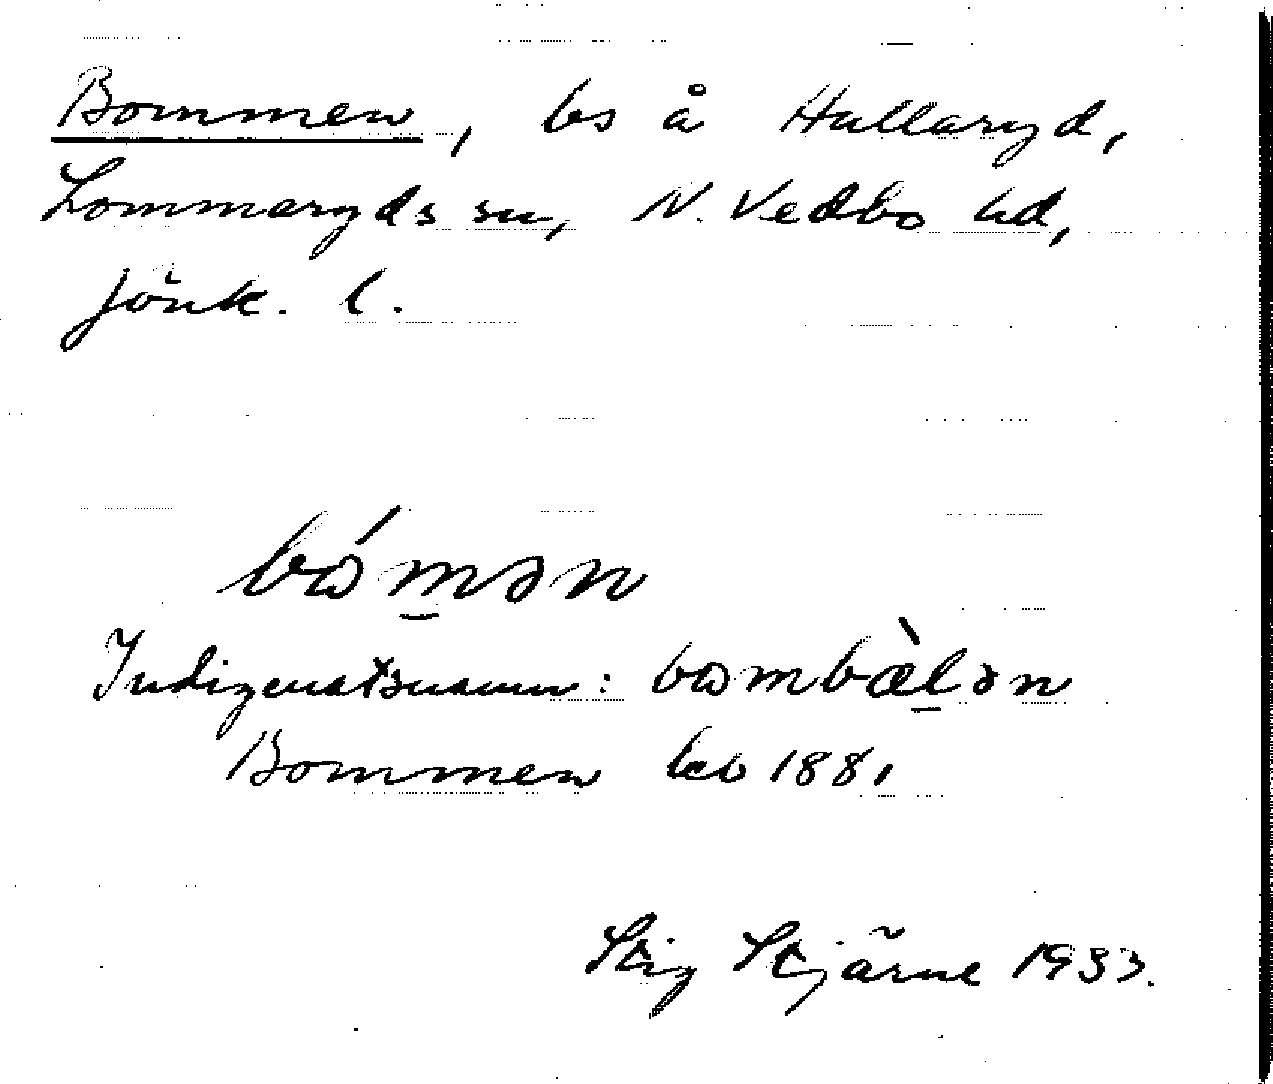 Bommen, bs å Hullaryd,
Lommaryds sn, N. Vedbo hd,
Jönk. l.
bómən
Indigenatsnamn: bombæ̀lən
Bommen kb 1881
Stig Stjärne 1933.